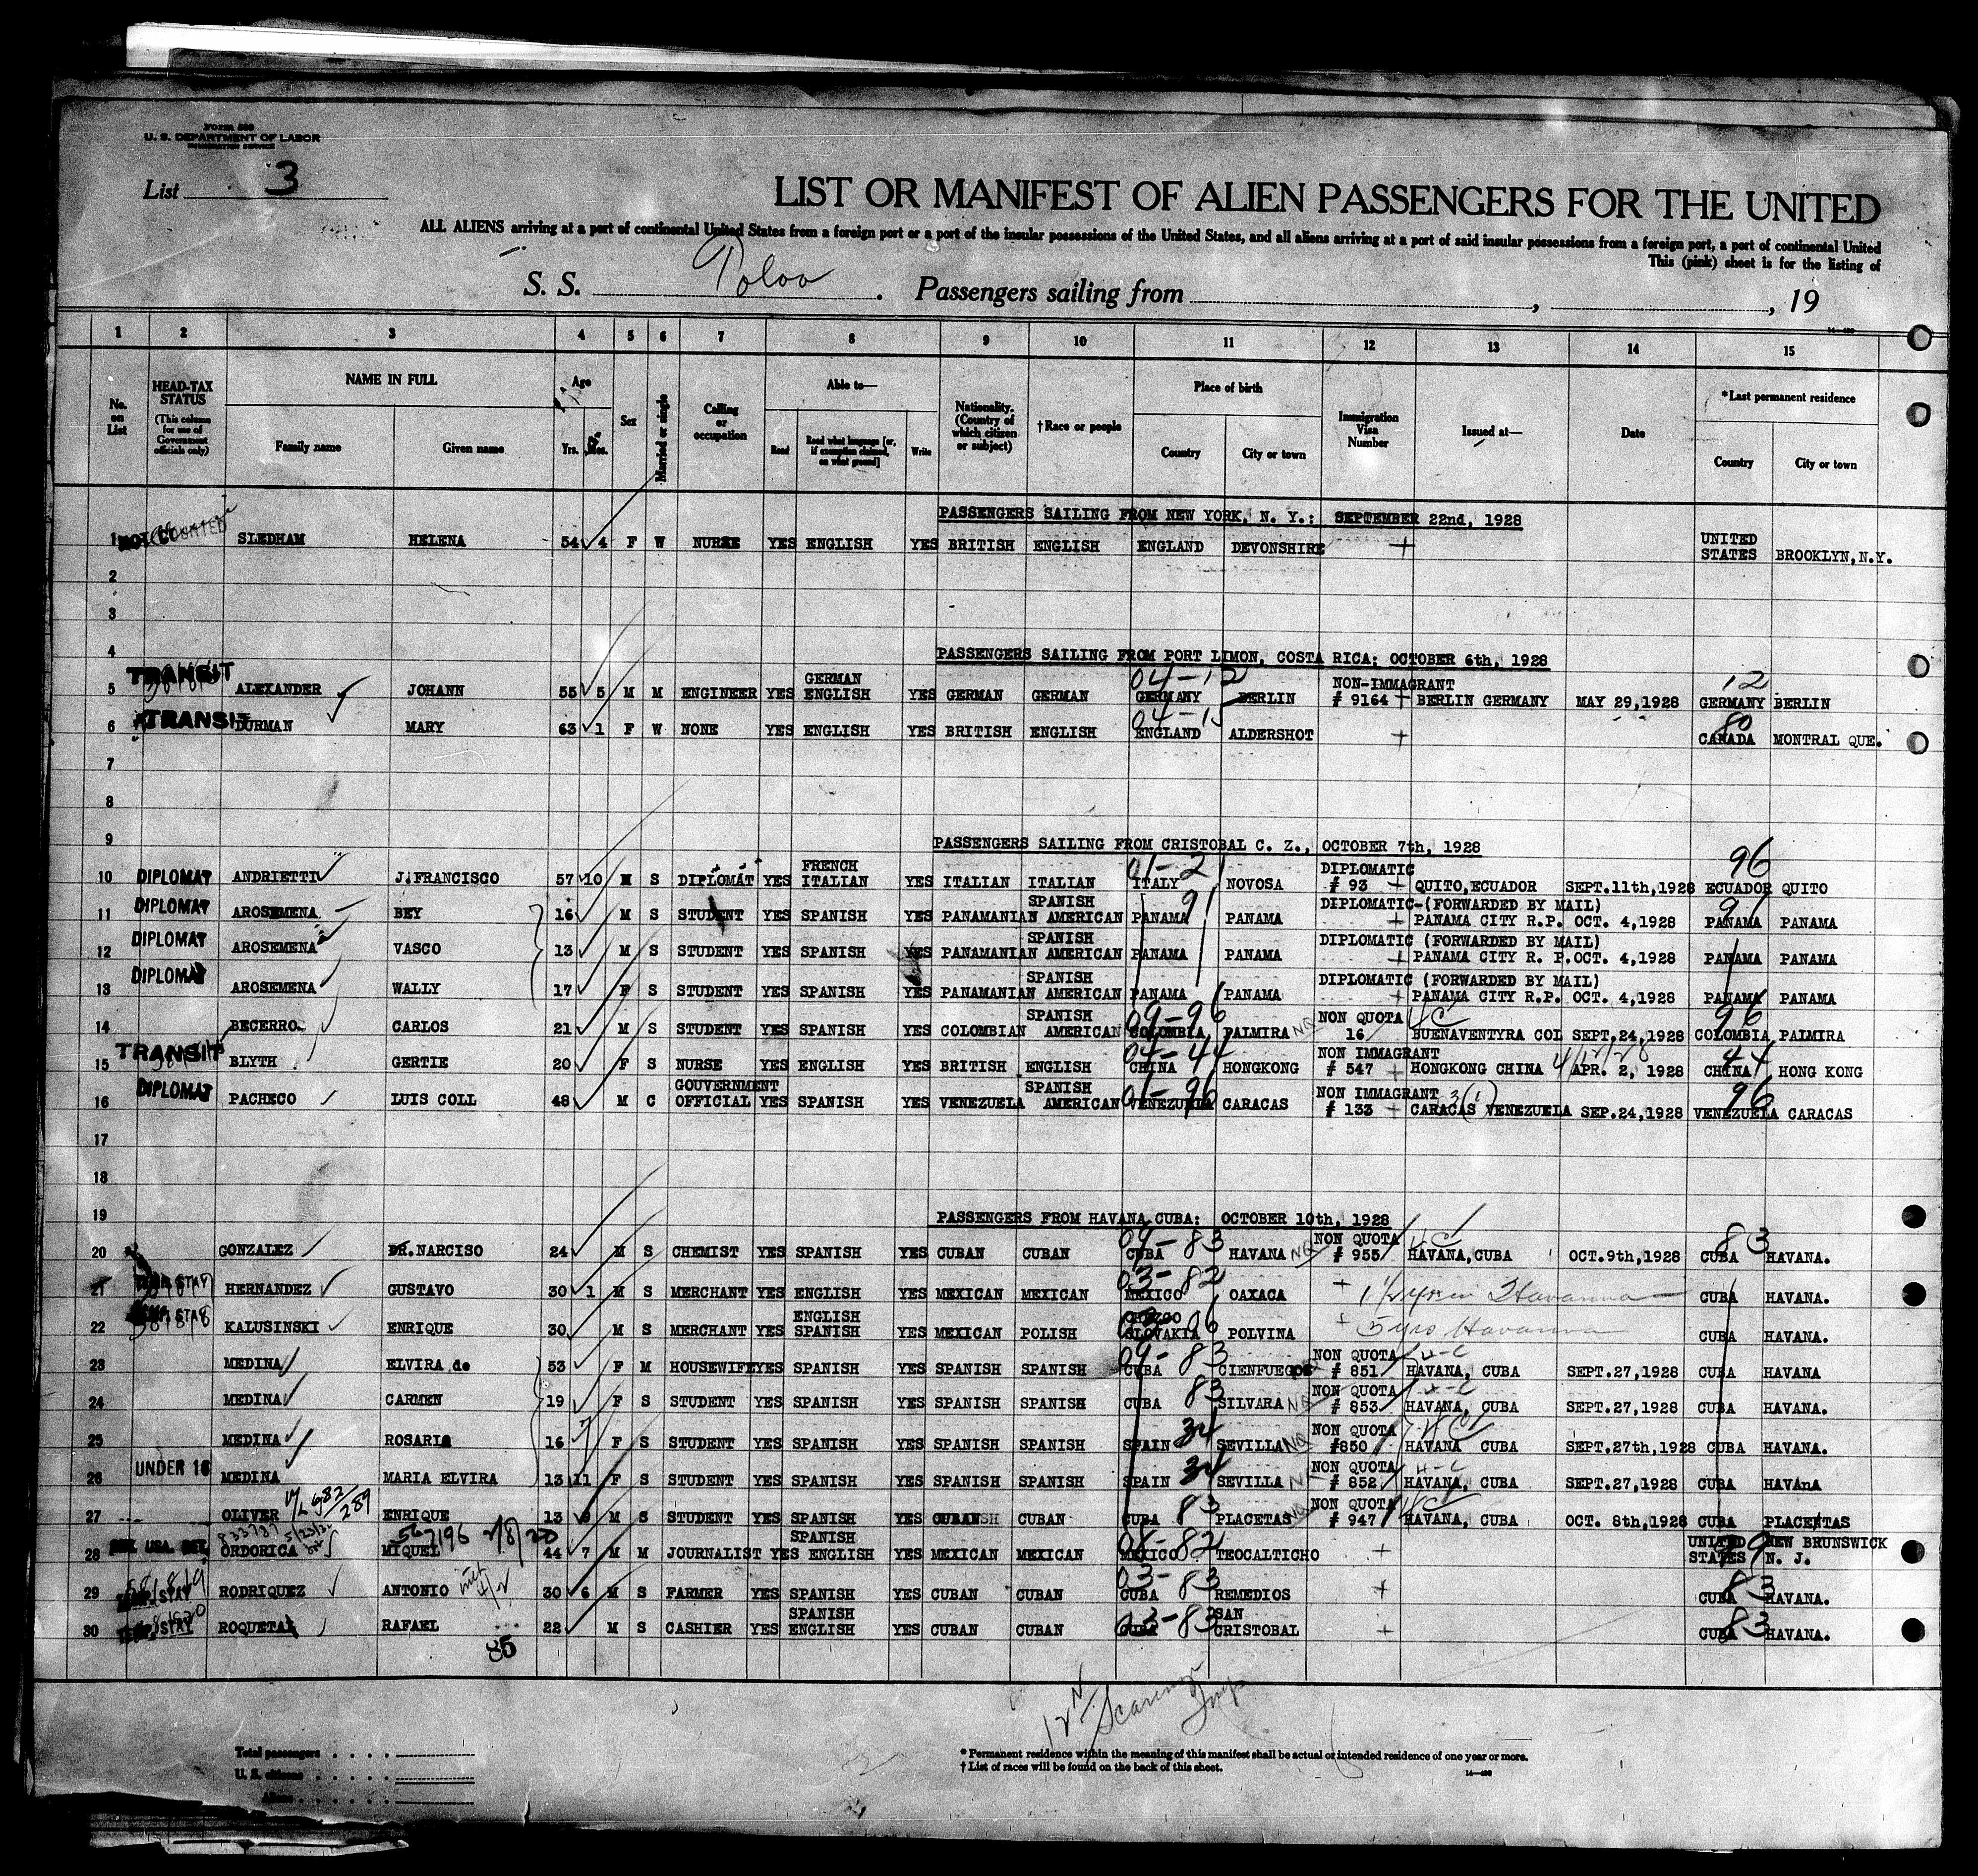 Form 500
U. S. DEPARTMENT OF LABOR
IMMIGRATION SERVICE
List 3
LIST OR MANIFEST OF ALIEN PASSENGERS FOR THE UNITED
ALL ALIENS arriving at a port of continental United States from a foreign port or a port of the insular possessions of the United States, and all aliens arriving at a port of said insular possessions from a foreign port, a port of continental United
This (pink) sheet is for the listing of
S. S. Toloa. Passengers sailing from , , 19
1 2 3 4 5 6 7 8 9 10 11 12 13 14 15
No. on List
HEAD-TAX STATUS (This column for use of Government officials only)
NAME IN FULL
Family name Given name
Age
Yrs. Mos.
Sex
Married or single
Calling or occupation
Able to—
Read Read what language [or, if exemption claimed, on what ground] Write
Nationality. (Country of which citizen or subject)
†Race or people
Place of birth
Country City or town
Immigration Visa Number
Issued at—
Date
*Last permanent residence
Country City or town
PASSENGERS SAILING FROM NEW YORK, N. Y.: SEPTEMBER 22nd, 1928
1 SLEDHAM HELENA 54 4 F W NURSE YES ENGLISH YES BRITISH ENGLISH ENGLAND DEVONSHIRE UNITED STATES BROOKLYN,N.Y.
2
3
4 PASSENGERS SAILING FROM PORT LIMON, COSTA RICA: OCTOBER 6th, 1928
TRANSIT 04-12 12
5 ALEXANDER JOHANN 55 5 M M ENGINEER YES GERMAN ENGLISH YES GERMAN GERMAN GERMANY BERLIN NON-IMMAGRANT # 9164 BERLIN GERMANY MAY 29,1928 GERMANY BERLIN
TRANSIT 04-15 80
6 DURMAN MARY 63 1 F W NONE YES ENGLISH YES BRITISH ENGLISH ENGLAND ALDERSHOT CANADA MONTRAL QUE.
7
8
9 PASSENGERS SAILING FROM CRISTOBAL C. Z., OCTOBER 7th, 1928
10 DIPLOMAT ANDRIETTI J.FRANCISCO 57 10 M S DIPLOMAT YES FRENCH ITALIAN YES ITALIAN ITALIAN 01-21 ITALY NOVOSA DIPLOMATIC # 93 QUITO,ECUADOR SEPT.11th,1928 96 ECUADOR QUITO
11 DIPLOMAT AROSEMENA BEY 16 M S STUDENT YES SPANISH YES PANAMANIAN SPANISH AMERICAN PANAMA 91 PANAMA DIPLOMATIC-(FORWARDED BY MAIL) PANAMA CITY R.P. OCT. 4,1928 91 PANAMA PANAMA
12 DIPLOMAT AROSEMENA VASCO 13 M S STUDENT YES SPANISH YES PANAMANIAN SPANISH AMERICAN PANAMA PANAMA DIPLOMATIC (FORWARDED BY MAIL) PANAMA CITY R. P.OCT. 4,1928 PANAMA PANAMA
13 DIPLOMAT AROSEMENA WALLY 17 F S STUDENT YES SPANISH YES PANAMANIAN SPANISH AMERICAN PANAMA PANAMA DIPLOMATIC (FORWARDED BY MAIL) PANAMA CITY R.P. OCT. 4,1928 PANAMA PANAMA
14 BECERRO. CARLOS 21 M S STUDENT YES SPANISH YES COLOMBIAN SPANISH AMERICAN 09-96 COLOMBIA PALMIRA NQ NON QUOTA 16 4C BUENAVENTYRA COL SEPT.24,1928 96 COLOMBIA PALMIRA
15 TRANSIT BLYTH GERTIE 20 F S NURSE YES ENGLISH YES BRITISH ENGLISH 04-44 CHINA HONGKONG NON IMMAGRANT # 547 HONGKONG CHINA APR. 2, 1928 44 CHINA HONG KONG
16 DIPLOMAT PACHECO LUIS COLL 48 M C GOUVERNMENT OFFICIAL YES SPANISH YES VENEZUELA SPANISH AMERICAN 01-96 VENEZUELA CARACAS NON IMMAGRANT # 133 3(1) CARACAS VENEZUELA SEP.24,1928 96 VENEZUELA CARACAS
17
18
19 PASSENGERS FROM HAVANA CUBA: OCTOBER 10th, 1928
20 GONZALEZ DR.NARCISO 24 M S CHEMIST YES SPANISH YES CUBAN CUBAN 09-83 CUBA HAVANA NQ NON QUOTA # 955 4C HAVANA,CUBA OCT.9th,1928 83 CUBA HAVANA.
21 HERNANDEZ GUSTAVO 30 1 M S MERCHANT YES ENGLISH YES MEXICAN MEXICAN 03-82 MEXICO OAXACA Havanna CUBA HAVANA.
22 KALUSINSKI ENRIQUE 30 M S MERCHANT YES ENGLISH SPANISH YES MEXICAN POLISH SLOVAKIA 06 POLVINA 5 yrs Havanna CUBA HAVANA.
23 MEDINA ELVIRA de 53 F M HOUSEWIFE YES SPANISH YES SPANISH SPANISH 09-83 CUBA CIENFUEGOS NON QUOTA # 851 4-C HAVANA, CUBA SEPT.27,1928 CUBA HAVANA
24 MEDINA CARMEN 19 F S STUDENT YES SPANISH YES SPANISH SPANISH CUBA 83 SILVARA NQ NON QUOTA # 853 4-C HAVANA, CUBA SEPT.27,1928 CUBA HAVANA.
25 MEDINA ROSARIA 16 F S STUDENT YES SPANISH YES SPANISH SPANISH SPAIN 34 SEVILLA NQ NON QUOTA #850 4C HAVANA CUBA SEPT.27th,1928 CUBA HAVANA.
26 UNDER 16 MEDINA MARIA ELVIRA 13 11 F S STUDENT YES SPANISH YES SPANISH SPANISH SPAIN 34 SEVILLA NQ NON QUOTA # 852 4-C HAVANA, CUBA SEPT.27,1928 CUBA HAVAnA
27 OLIVER ENRIQUE 13 9 M S STUDENT YES SPANISH YES CUBAN CUBAN CUBA 83 PLACETAS NQ NON QUOTA # 947 4C HAVANA, CUBA OCT. 8th,1928 CUBA PLACENTAS
28 ORDORICA MIQUEL 567196 44 7 M M JOURNALIST YES SPANISH ENGLISH YES MEXICAN MEXICAN 08-82 MEXICO TEOCALTICHO UNITED STATES NEW BRUNSWICK N. J.
29 RODRIQUEZ ANTONIO 30 6 M S FARMER YES SPANISH YES CUBAN CUBAN 03-83 CUBA REMEDIOS 83 CUBA HAVANA.
30 ROQUETA RAFAEL 22 M S CASHIER YES SPANISH ENGLISH YES CUBAN CUBAN 03-83 CUBA SAN CRISTOBAL 83 CUBA HAVANA.
85
Total passengers
U. S. citizens
Aliens
* Permanent residence within the meaning of this manifest shall be actual or intended residence of one year or more.
† List of races will be found on the back of this sheet.